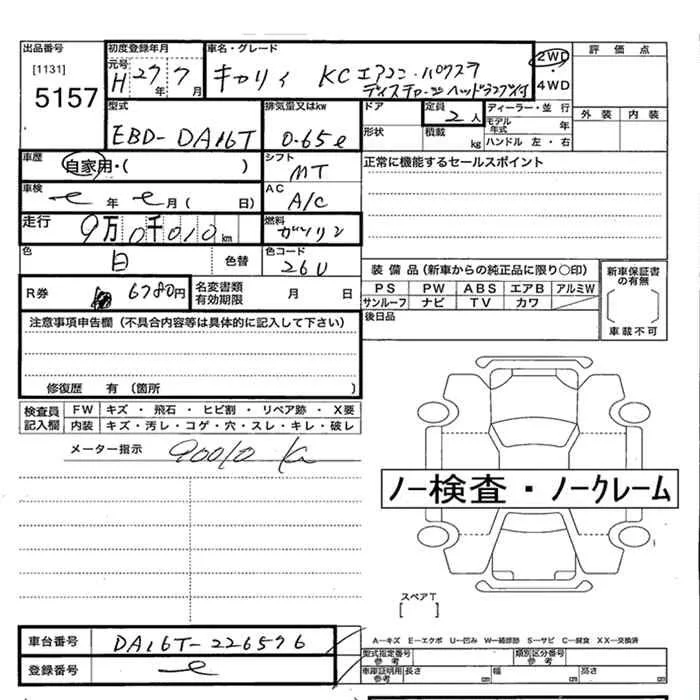 出品番号 初度登録年月 車名・グレード 評価点
[1131] 元号 H 27年 7月 キャリィ KCエアコン・パワステ 2WD
5157 ディスチャージヘッドランプ付 4WD
型式 排気量又はkw ドア 定員 2人 ディーラー・並行 外装 内装
EBD-DA16T 0.65ℓ 形状 積載 kg モデル年式 年
ハンドル 左・右
車歴 自家用・( ) シフト MT 正常に機能するセールスポイント
車検 年 月( 日) AC A/C
走行 9万0千010km 燃料 ガソリン
色 白 色替 色コード 26U
R券 6780円 名変書類有効期限 月 日
装備品(新車からの純正品に限り○印) 新車保証書の有無
PS PW ABS エアB アルミW
サンルーフ ナビ TV カワ
車載不可
後日品
注意事項申告欄(不具合内容等は具体的に記入して下さい)
修復歴 有(箇所 )
検査員記入欄 FW キズ・飛石・ヒビ割・リペア跡・X要
内装 キズ・汚レ・コゲ・穴・スレ・キレ・破レ
メーター指示 90010 Km
ノー検査・ノークレーム
スペアT
[ ]
車台番号 DA16T-226576
登録番号
A―キズ E―エクボ U―凹み W―補修跡 S―サビ C―腐食 XX―交換済
型式指定番号 参考 類別区分番号 参考
車庫証明用 参考 長さ cm 幅 cm 高さ cm